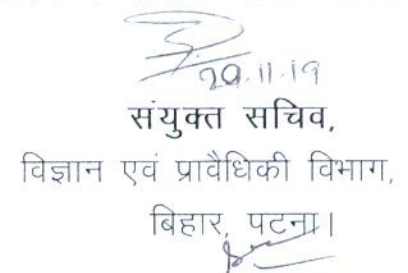 29.11.19
संयुक्त सचिव,
विज्ञान एवं प्रावैधिकी विभाग,
बिहार, पटना।